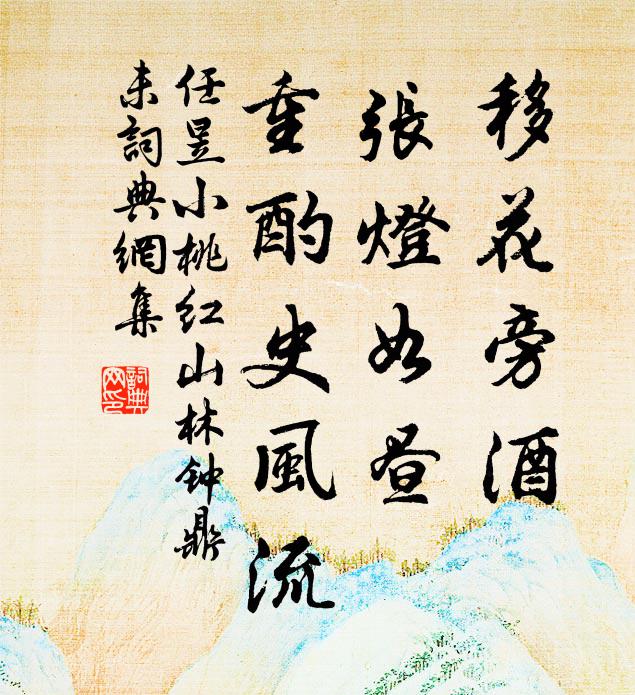 移花旁酒
張燈如晝
重酌史風流
任昱小桃红山林钟鼎
未詞典網集
詞典
网印